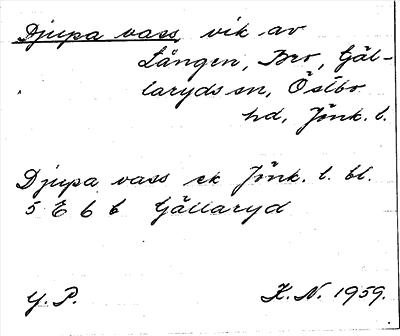 Djupa vass vik av
Lången, Bro, Gäl-
laryds sn, Östbo
hd, Jönk. l.
Djupa vass ek Jönk. l. bl.
5 E 6 b Gällaryd
Y. P. K. N. 1959.